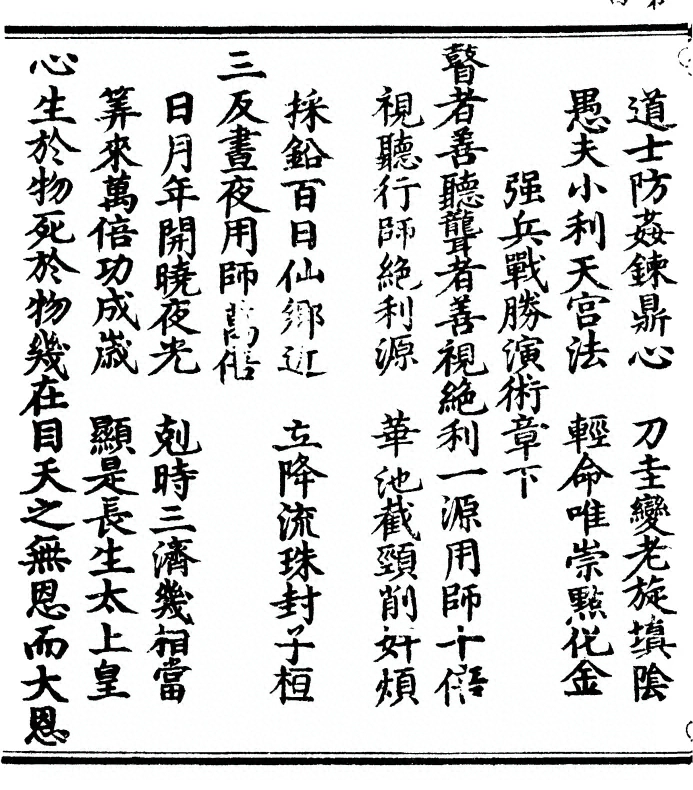 道士防姦鍊鼎心　刀圭變老旋塡陰
愚夫小利天宫法　輕命唯崇點化金
强兵戰勝演術章下
瞽者善聽聾者善視絕利一源用師十倍
視聽行師絕利源　華池截頸削奸煩
採鉛百日仙鄉近　立降流珠封子桓
三反晝夜用師萬倍
日月年開曉夜光　剋時三濟幾相當
筭來萬倍功成歲　顯是長生太上皇
心生於物死於物幾在目天之無恩而大恩